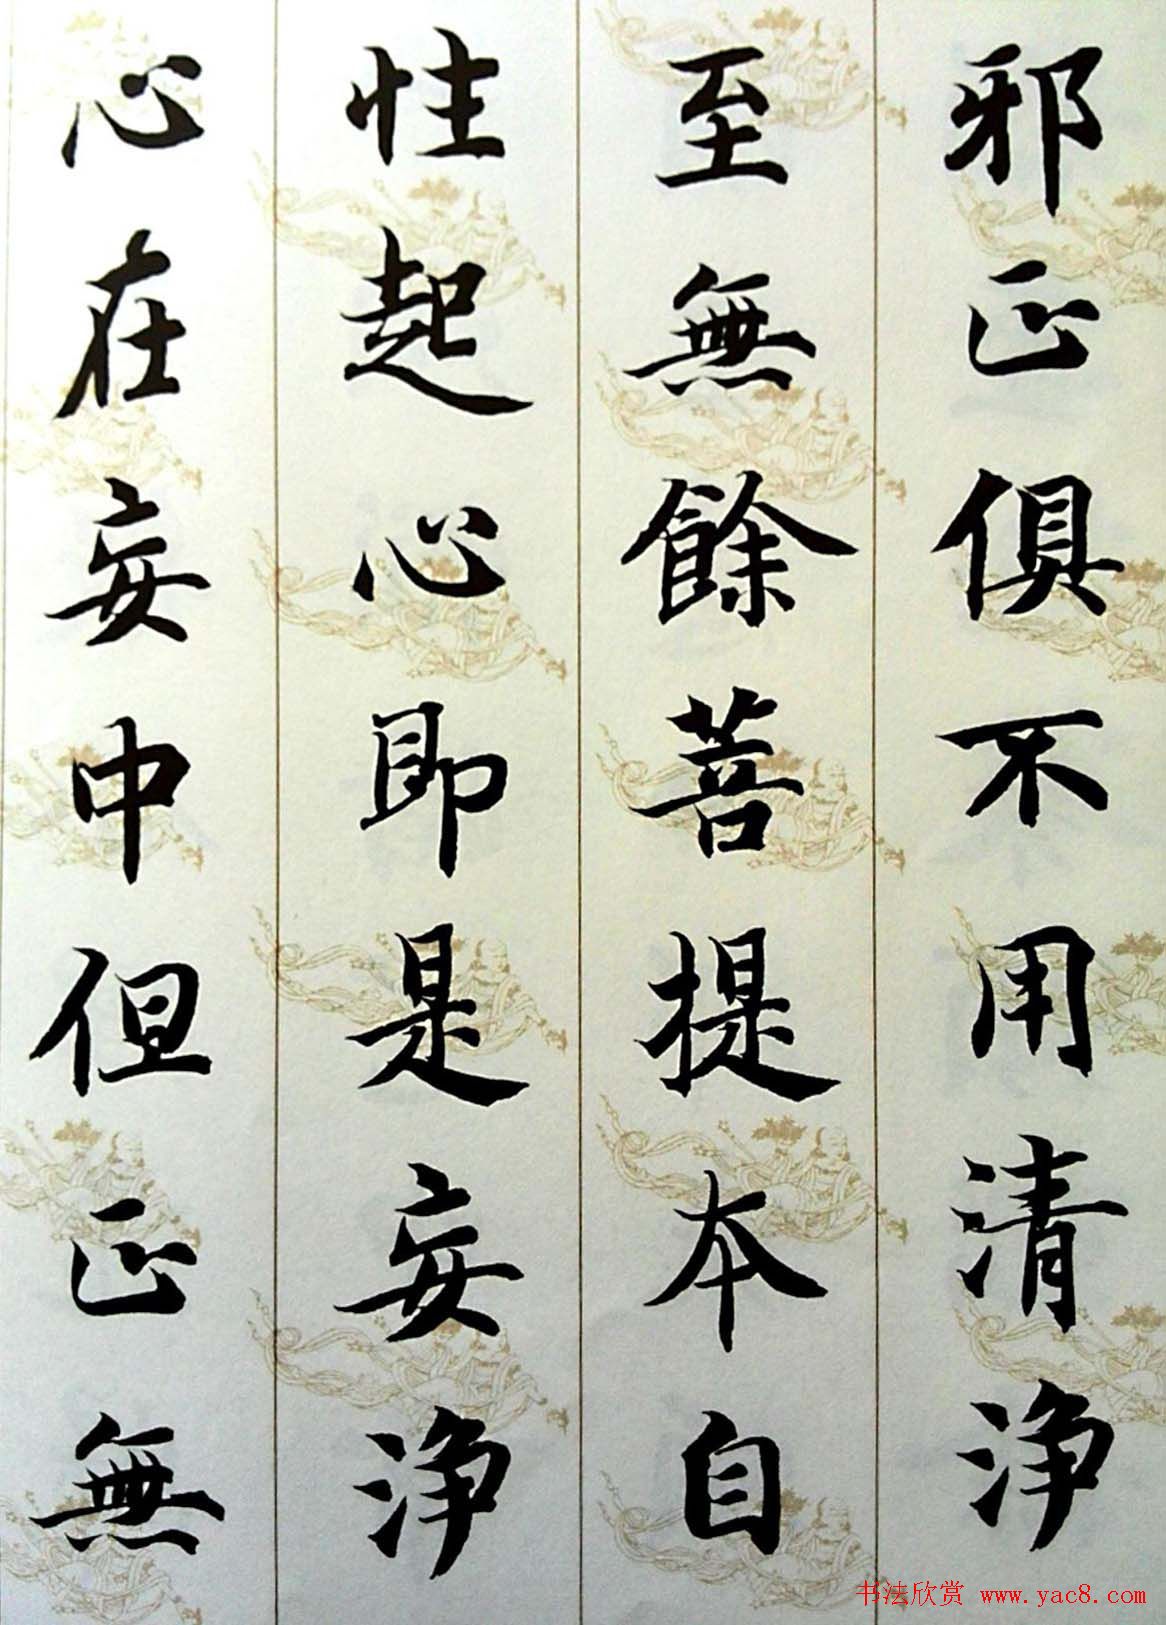 邪正俱不用清净
至無餘菩提本自
性起心即是妄净
心在妄中但正無
书法欣赏 www.yac8.com